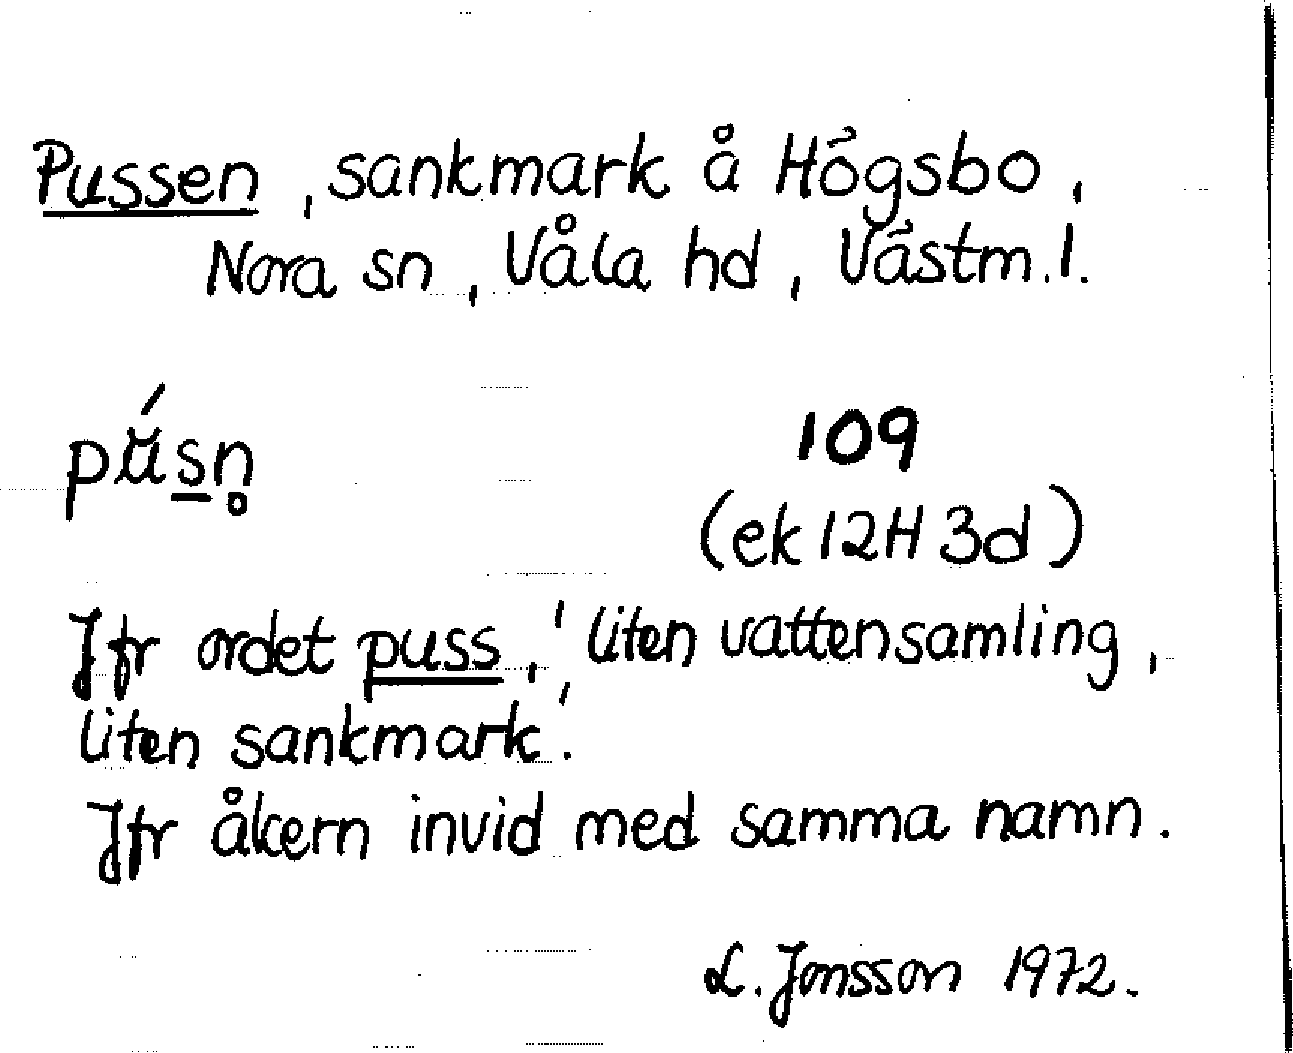 Pussen, sankmark å Högsbo,
Nora sn, Våla hd, Västm.l.
pú̆s̲n̥
109
(ek 12H 3d)
Jfr ordet puss, 'liten vattensamling,
liten sankmark'.
Jfr åkern invid med samma namn.
L. Jonsson 1972.